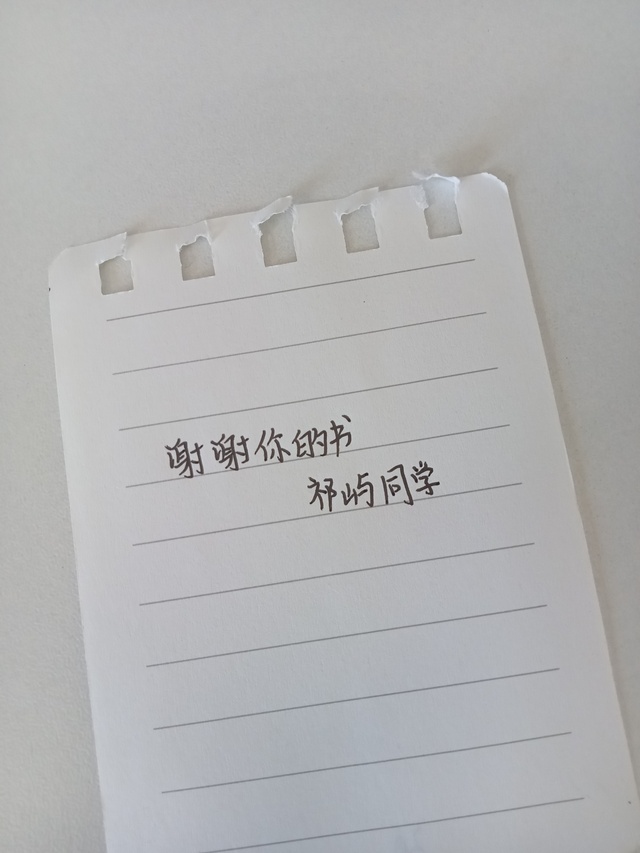 谢谢你的书
祁屿同学